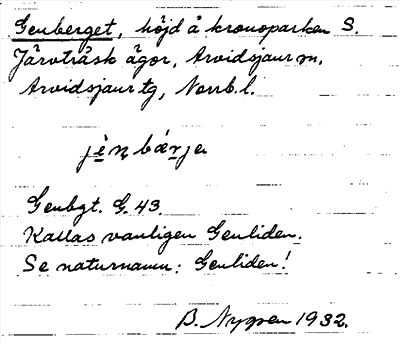 Genberget, höjd å kronoparken S.
Järvträsk ägor, Arvidsjaur sn,
Arvidsjaur tg, Norrb. l.
jènbǽrje
Genbgt. G. 43.
Kallas vanligen Genliden.
Se naturnamn: Genliden!
B. Nygren 1932.